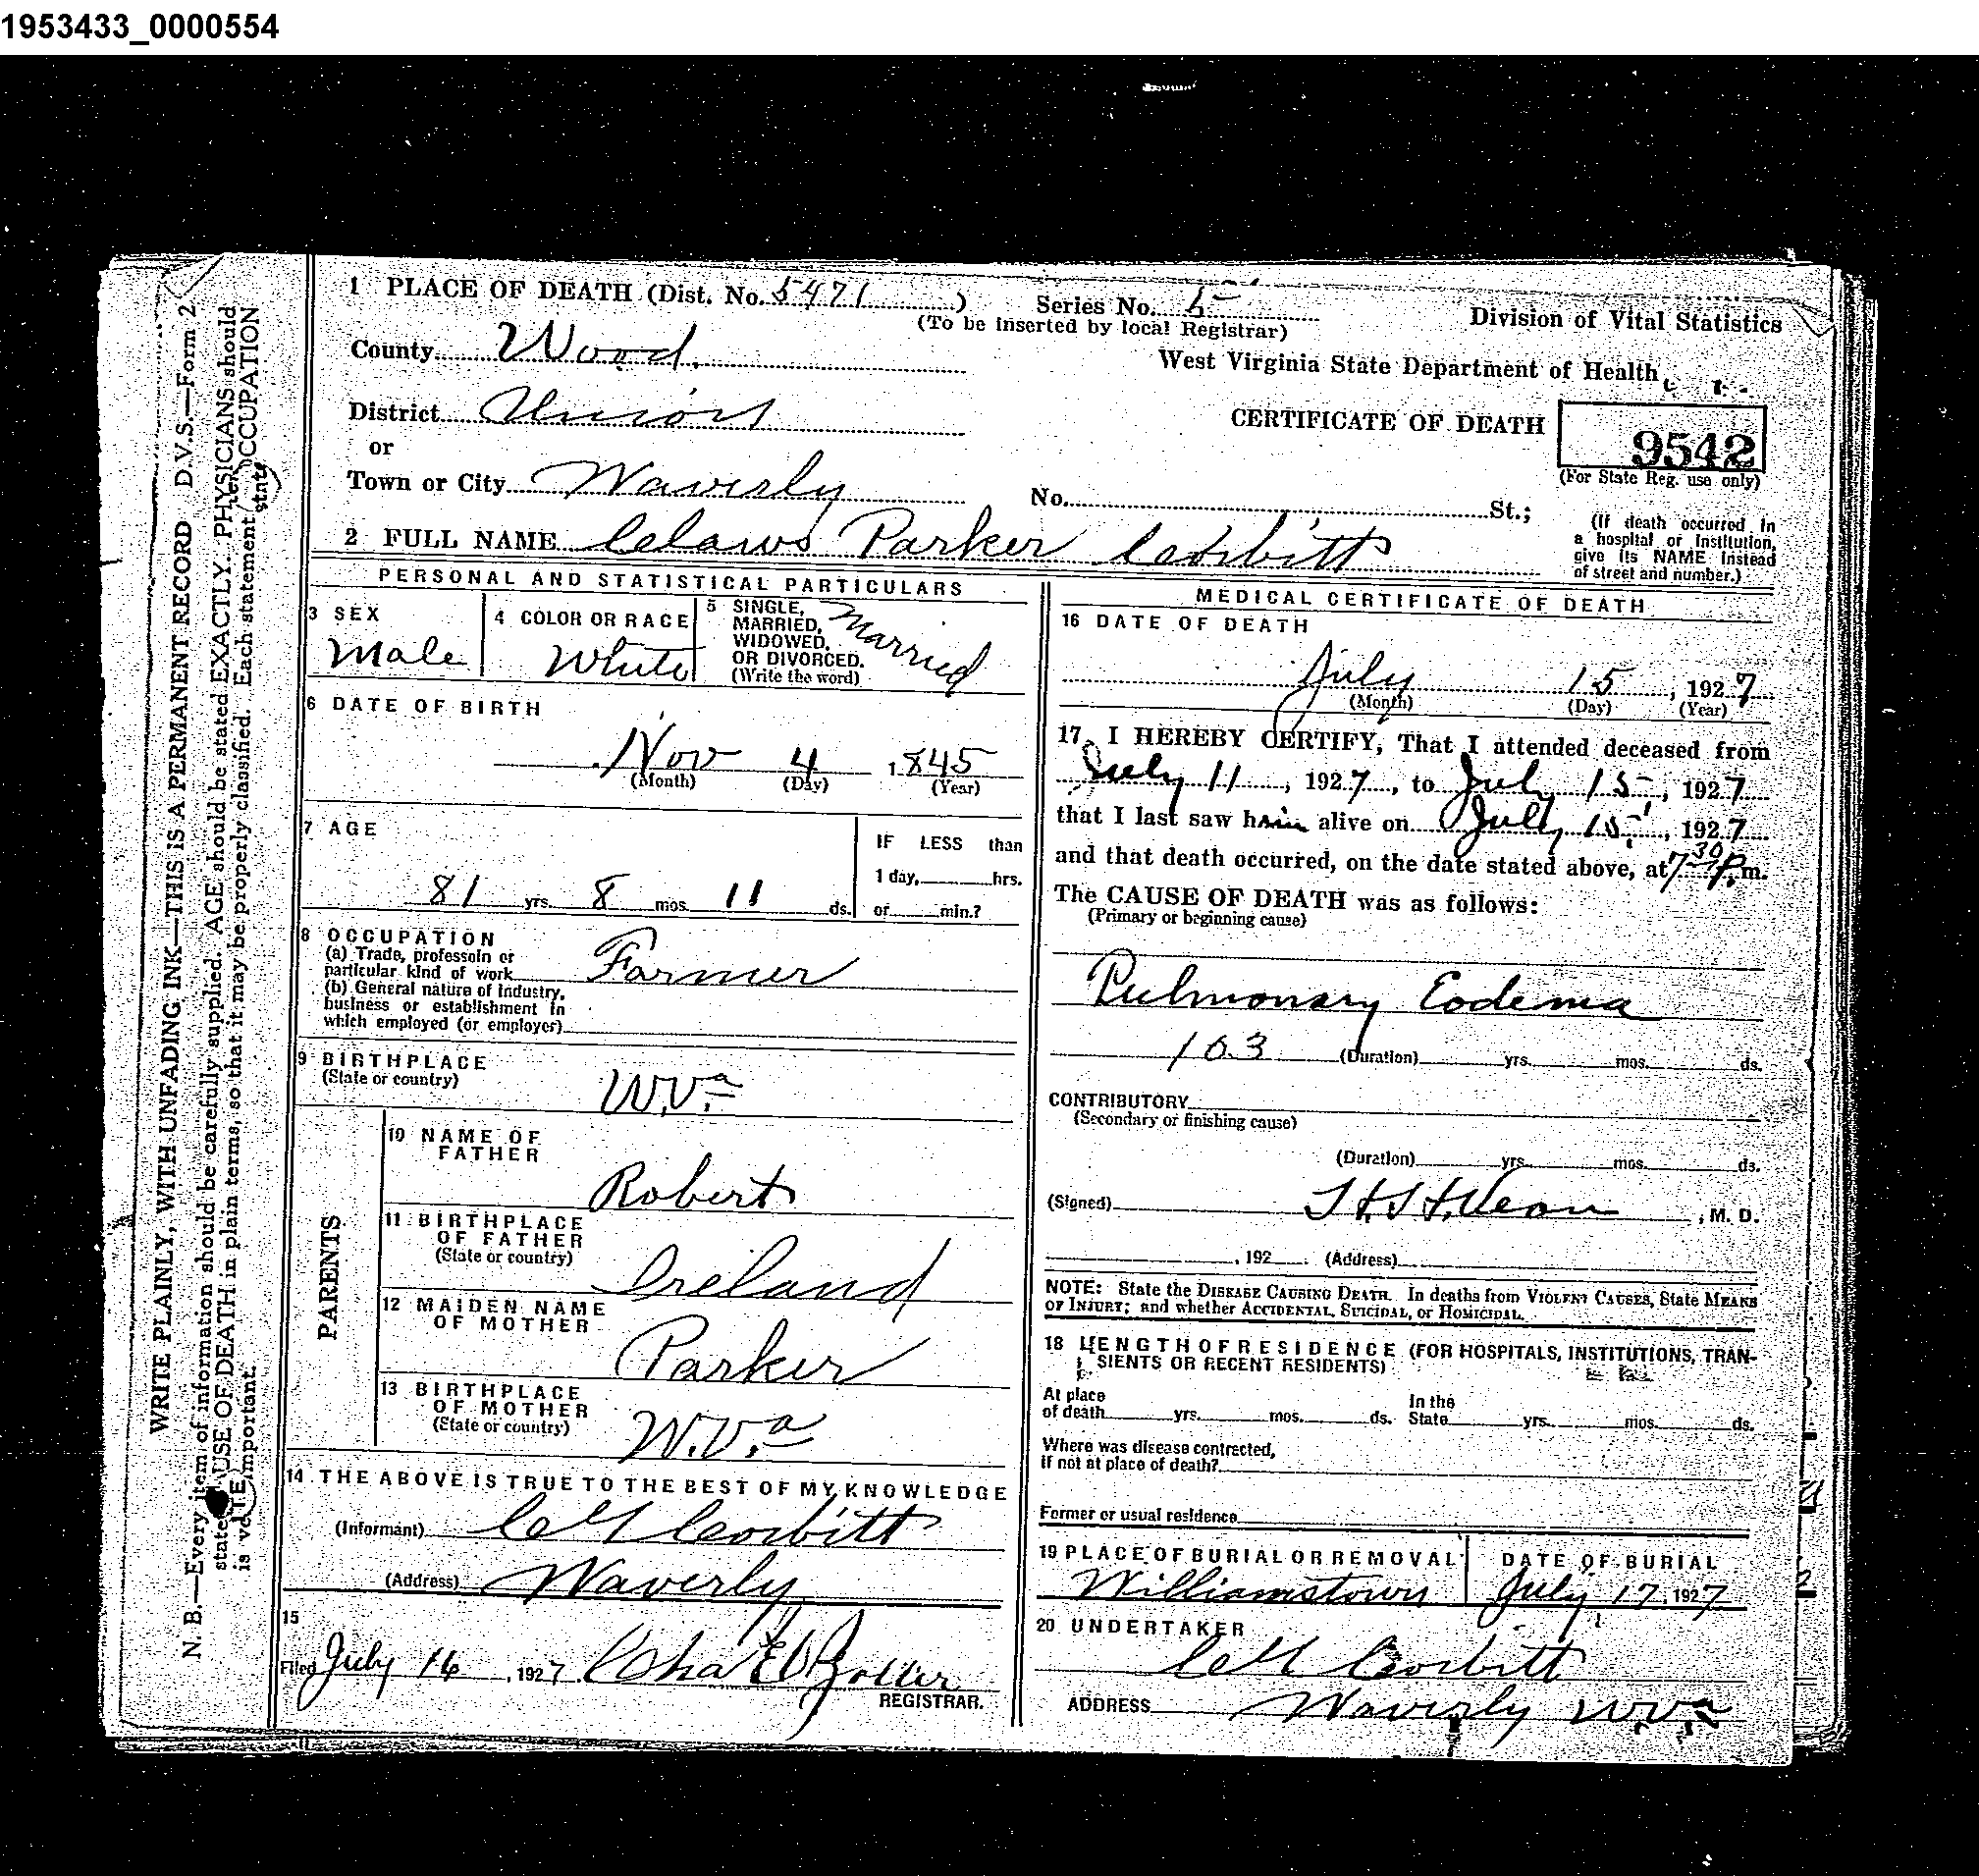 1953433_0000554
1 PLACE OF DEATH (Dist. No. 5471) Series No. 5
(To be inserted by local Registrar)
Division of Vital Statistics
County Wood.
West Virginia State Department of Health
District Union
CERTIFICATE OF DEATH
9542
or
(For State Reg. use only)
Town or City Waverly
No. St.;
(If death occurred in
a hospital or Institution,
give its NAME instead
of street and number.)
2 FULL NAME Parker Corbitt
PERSONAL AND STATISTICAL PARTICULARS
3 SEX
Male
4 COLOR OR RACE
White
5 SINGLE,
MARRIED,
WIDOWED,
OR DIVORCED.
(Write the word)
Married
6 DATE OF BIRTH
Nov 4 1845
(Month) (Day) (Year)
7 AGE
81 yrs. 8 mos. 11 ds.
IF LESS than
1 day, hrs.
or min.?
8 OCCUPATION
(a) Trade, professoin or
particular kind of work Farmer
(b) General nature of Industry,
business or establishment in
which employed (or employer)
9 BIRTHPLACE
(State or country)
W.Va
PARENTS
10 NAME OF
FATHER
Robert
11 BIRTHPLACE
OF FATHER
(State or country)
Ireland
12 MAIDEN NAME
OF MOTHER
Parker
13 BIRTHPLACE
OF MOTHER
(State or country)
W.Va
14 THE ABOVE IS TRUE TO THE BEST OF MY KNOWLEDGE
(Informant) Corbitt
(Address) Waverly
15
Filed July 16, 1927
REGISTRAR.
MEDICAL CERTIFICATE OF DEATH
16 DATE OF DEATH
July 15, 1927
(Month) (Day) (Year)
17 I HEREBY CERTIFY, That I attended deceased from
July 11, 1927, to July 15, 1927
that I last saw him alive on July 15, 1927
and that death occurred, on the date stated above, at 7 30 P. m.
The CAUSE OF DEATH was as follows:
(Primary or beginning cause)
Pulmonary Eodema
103 (Duration) yrs. mos. ds.
CONTRIBUTORY
(Secondary or finishing cause)
(Duration) yrs. mos. ds.
(Signed) , M. D.
, 192 (Address)
NOTE: State the DISEASE CAUSING DEATH. In deaths from VIOLENT CAUSES, State MEANS
OF INJURY; and whether ACCIDENTAL, SUICIDAL, or HOMICIDAL.
18 LENGTH OF RESIDENCE (FOR HOSPITALS, INSTITUTIONS, TRAN-
SIENTS OR RECENT RESIDENTS)
At place
of death yrs. mos. ds.
In the
State yrs. mos. ds.
Where was disease contracted,
if not at place of death?
Former or usual residence
19 PLACE OF BURIAL OR REMOVAL
Williamstown
DATE OF BURIAL
July 17, 1927
20 UNDERTAKER
Corbitt
ADDRESS Waverly W Va
WRITE PLAINLY, WITH UNFADING INK—THIS IS A PERMANENT RECORD D.V.S.—Form 2
N. B.—Every item of information should be carefully supplied. AGE should be stated EXACTLY. PHYSICIANS should
state CAUSE OF DEATH in plain terms, so that it may be properly classified. Each statement OCCUPATION
is important.